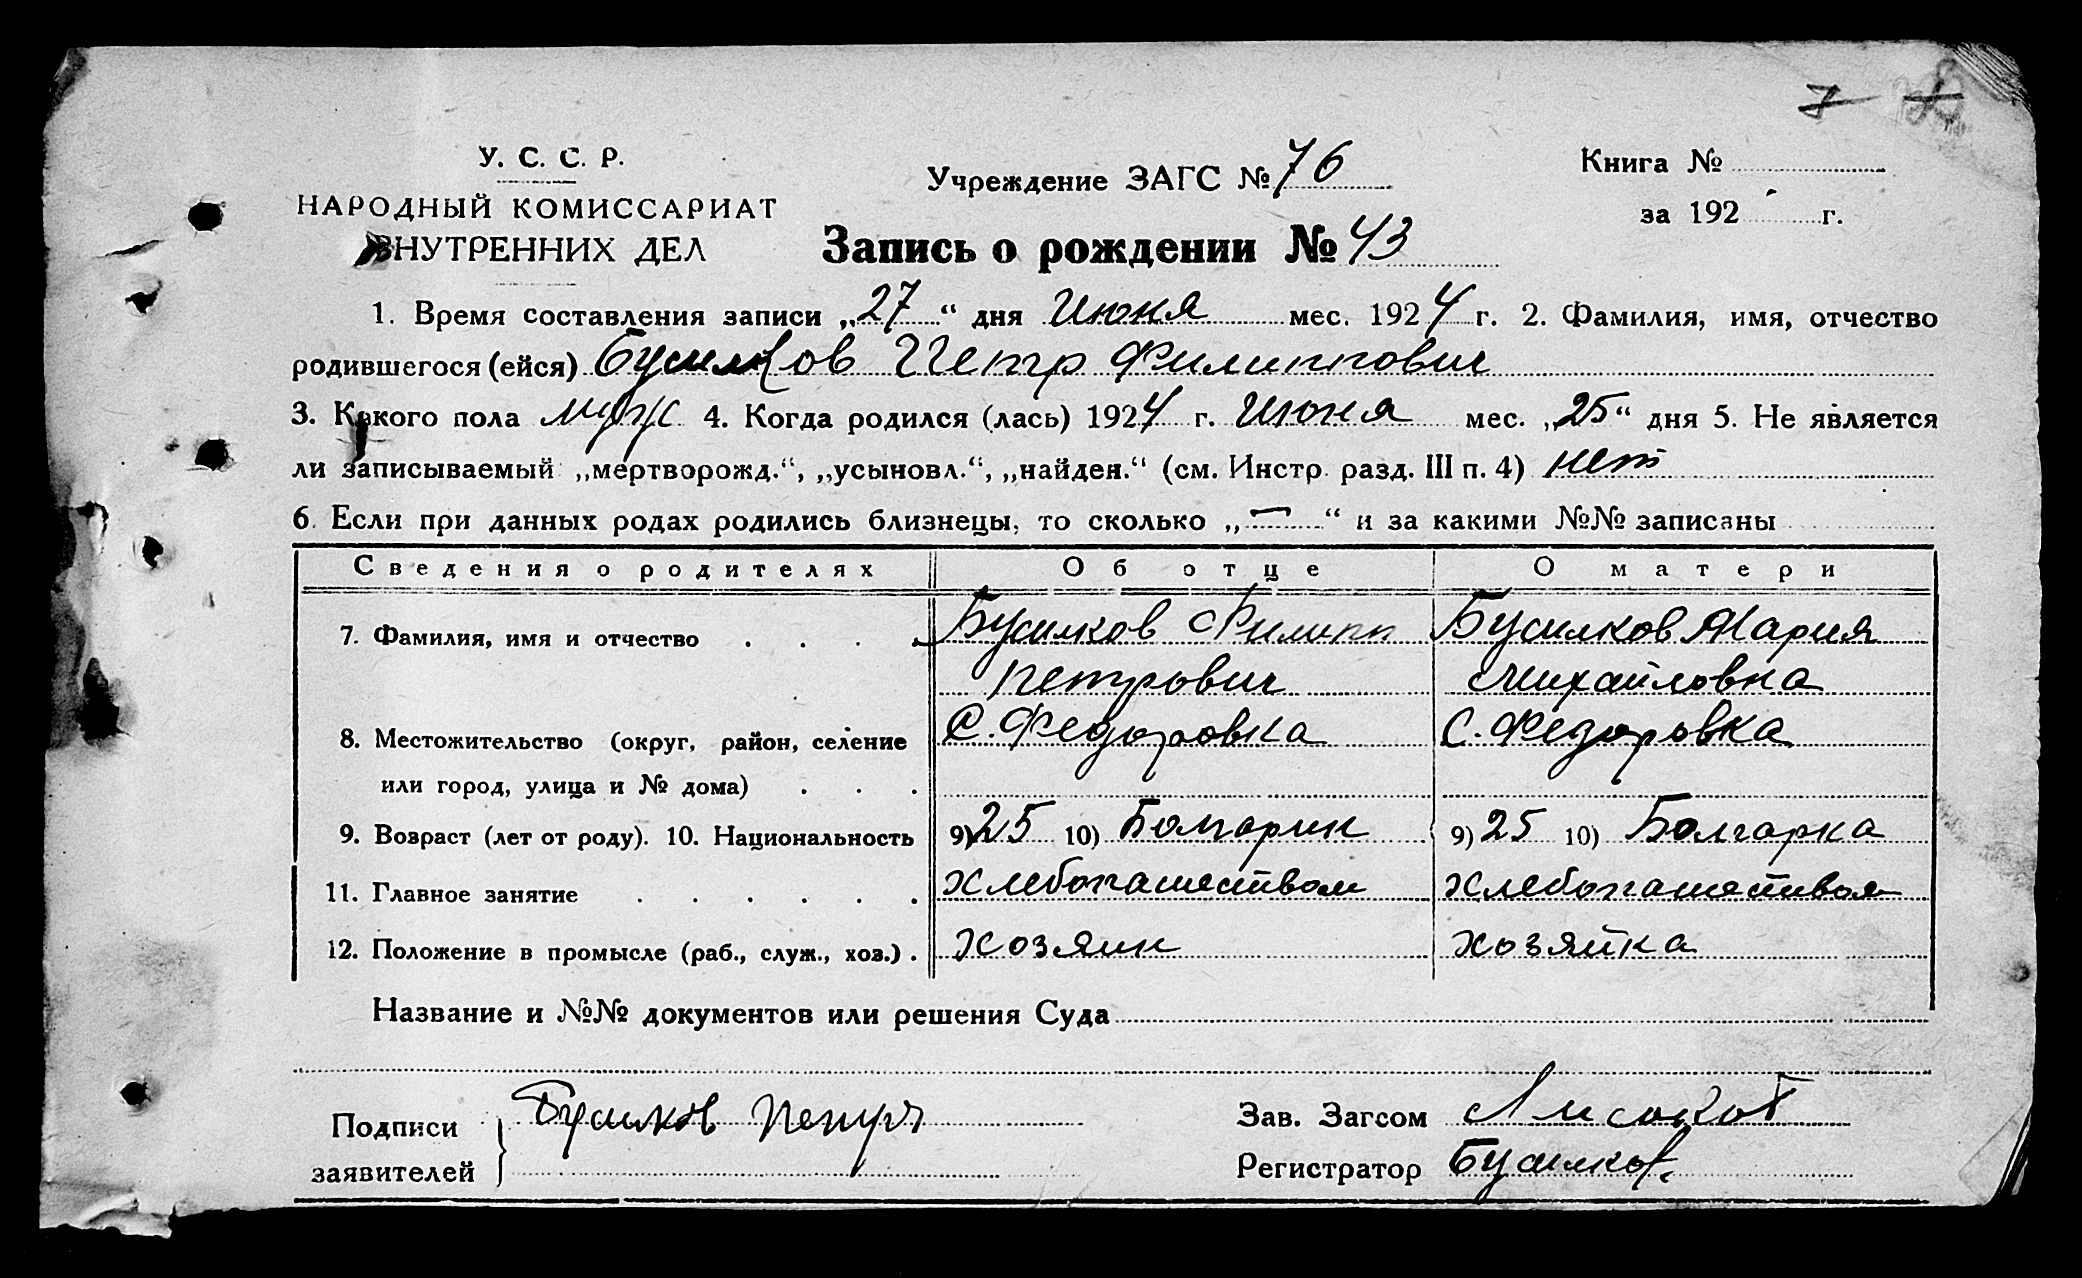 7
У. С. С. Р.
НАРОДНЫЙ КОМИССАРИАТ
ВНУТРЕННИХ ДЕЛ
Учреждение ЗАГС № 76
Книга №
за 192 г.
Запись о рождении № 43
1. Время составления записи „27“ дня Июня мес. 1924 г. 2. Фамилия, имя, отчество
родившегося (ейся) Бусилков Петр Филиппович
3. Какого пола муж. 4. Когда родился (лась) 1924 г. Июня мес. „25“ дня 5. Не является
ли записываемый „мертворожд.“, „усыновл.“, „найден.“ (см. Инстр. разд. III п. 4) нет
6. Если при данных родах родились близнецы, то сколько „—“ и за какими №№ записаны
Сведения о родителях Об отце О матери
7. Фамилия, имя и отчество . . . . Бусилков Филипп Бусилков Мария
Петрович Михайловна
8. Местожительство (округ, район, селение С. Федоровка С. Федоровка
или город, улица и № дома) . . .
9. Возраст (лет от роду). 10. Национальность 9) 25 10) Болгарин 9) 25 10) Болгарка
11. Главное занятие . . . . . . Хлебопашеством Хлебопашеством
12. Положение в промысле (раб., служ., хоз.) . хозяин хозяйка
Название и №№ документов или решения Суда
Подписи заявителей Бусилков Петр
Зав. Загсом
Регистратор Бусилков